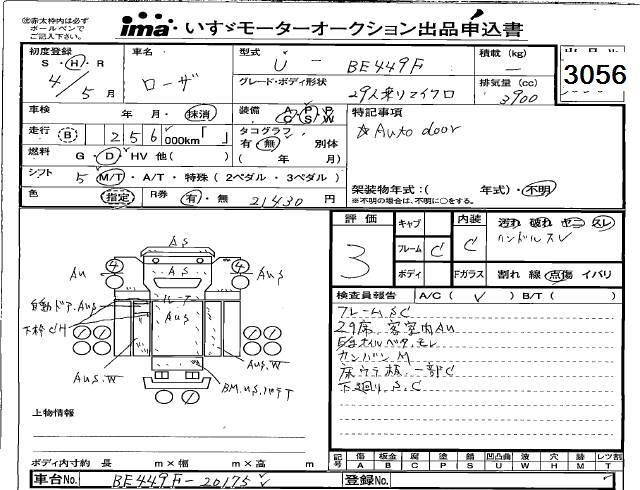 ㊟赤太枠内は必ず
ボールペンで
ご記入下さい。
ima いすゞモーターオークション出品申込書
初度登録 車名 型式 積載 (kg)
S・H・R ローザ U - BE449F —
4/5月 グレード・ボディ形状 排気量 (cc)
29人乗りマイクロ 3900
3056
車検 年 月・抹消 装備 A P P C S W 特記事項
走行 B 256 000km「 」 タコグラフ 有・無 別体 ☆Auto door
燃料 G・D・HV 他( ) ( 年 月)
シフト 5 M/T・A/T・特殊(2ペダル・3ペダル) 架装物年式:( 年式)・不明
色 指定 R券 有・無 21430 円 ※不明の場合は、不明に○をする。
評価 キャブ 内装 汚れ 破れ ヤニ スレ
3 フレーム C C ハンドルスレ
ボディ Fガラス 割れ 線 点傷 イバリ
検査員報告 A/C ( ✓ ) B/T ( )
フレーム.S.C
29席.客室内AU
カンバン M
床ウラ板.一部C
下廻り.S.C
AS
AS
4 4
AU AUS
自動ドア.AUS
AUS
下枠CH
AUS.W AUS.W
上物情報
ボディ内寸約 長 m×幅 m×高 m
記号 傷 板金 腐 塗 錆 凹凸曲 波 穴 跡 レツ割
A B C P S U W H M T
車台No. BE449F-20175 登録No.